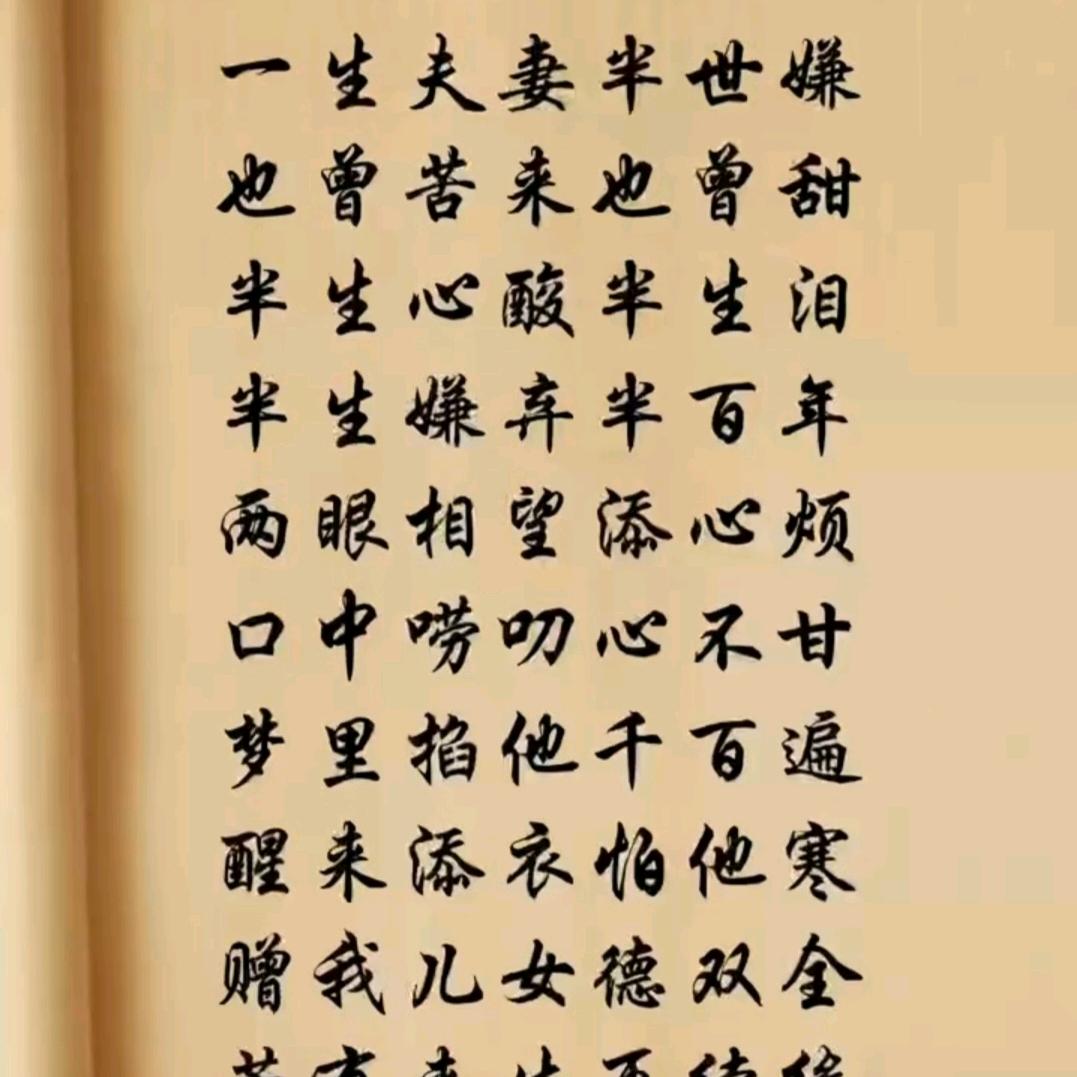 一生夫妻半世嫌
也曾苦来也曾甜
半生心酸半生泪
半生嫌弃半百年
两眼相望添心烦
口中唠叨心不甘
梦里掐他千百遍
醒来添衣怕他寒
赠我儿女德双全